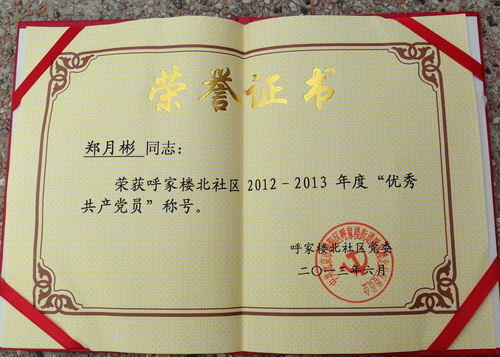 荣誉证书
郑月彬 同志：
荣获呼家楼北社区 2012-2013 年度“优秀
共产党员”称号。
呼家楼北社区党委
二〇一三年六月